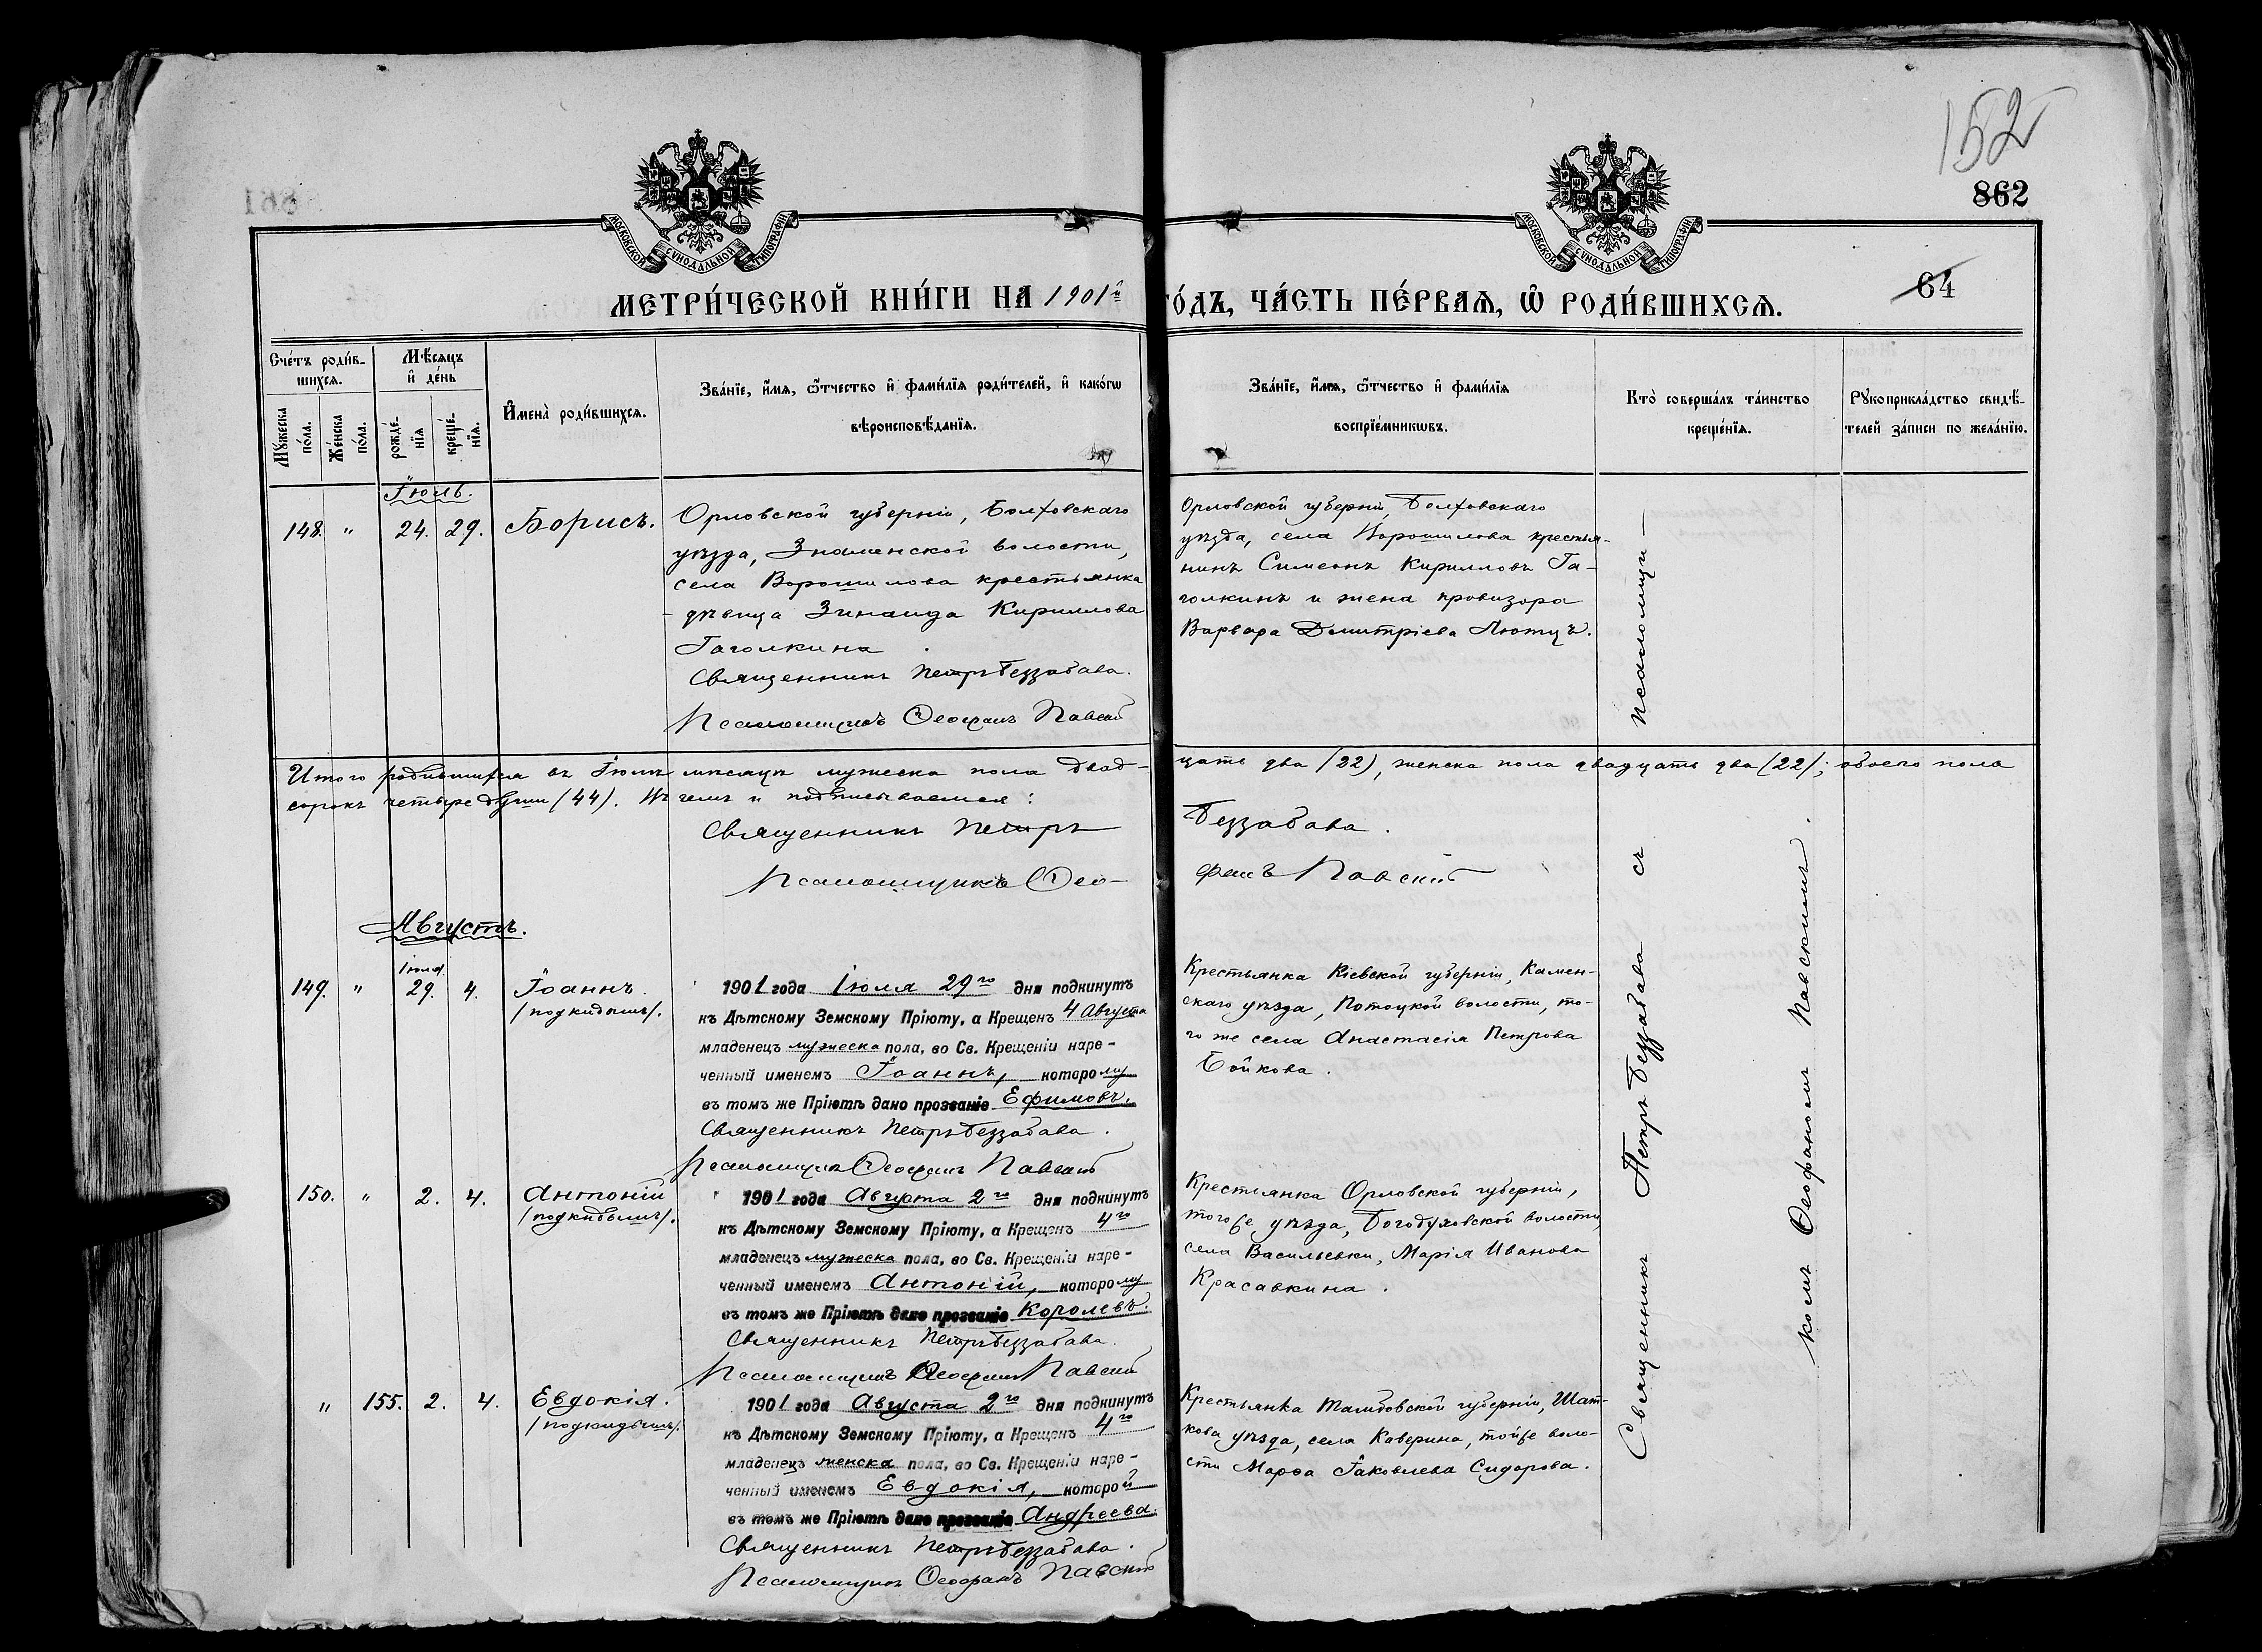 152
862
64
МОСКОВСКОЙ СѴНОДАЛЬНОЙ ТИПОГРАФІИ
МОСКОВСКОЙ СѴНОДАЛЬНОЙ ТИПОГРАФІИ
МЕТРИ́ЧЕСКОЙ КНИ́ГИ НА 1901й ГО́ДЪ, ЧА́СТЬ ПЕ́РВАЯ, Ѡ РОДИ́ВШИХСЯ.
Сче́тъ роди́в-
шихся.
Мѣ́сяцъ
и де́нь
Мꙋжеска по́ла.
Же́нска по́ла.
рожде́-
нїя
креще́-
нїя.
Имена̀ роди́вшихся.
Зва́нїе, и́мя, ѻ́тчество и фами́лїя роди́телей, и како́гѡ
вѣроисповѣ́данїя.
Зва́нїе, и́мя, ѻ́тчество и фами́лїя
воспрїе́мникѡвъ.
Кто̀ соверша́лъ та́инство
креще́нїя.
Рꙋкоприкла́дство свидѣ́-
телей за́писи по жела́нїю.
Іюль.
148. " 24. 29. Борисъ.
Орловской губерніи, Болховскаго
уѣзда, Знаменской волости,
села Ворошилова крестьянка
- дѣвица Зинаида Кириллова
Гаголкина
Священникъ Петръ Беззабава.
Псаломщикъ Ѳеофанъ Павскій
Орловской губерніи, Болховскаго
уѣзда, села Ворошилова крестья-
нинъ Симеонъ Кирилловъ Га-
голкинъ и жена провизора
Варвара Димитріева Лютцъ.
Итого родившихся въ Іюлѣ мѣсяцѣ мужеска пола двад-
цать два (22), женска пола двадцать два (22); обоего пола
сорокъ четыре души (44). Въ чемъ и подписываемся:
Священникъ Петръ Беззабава.
Псаломщикъ Ѳео-
фанъ Павскій
Августъ.
Іюля.
149. " 29. 4. Іоаннъ.
/подкидышъ/.
1901 года Іюля 29го дня подкинутъ
къ Дѣтскому Земскому Пріюту, а Крещенъ 4 Августа
младенецъ мужеска пола, во Св. Крещеніи наре-
ченный именемъ Іоаннъ, которому
въ томъ же Пріютѣ дано прозваніе Ефимовъ.
Священникъ Петръ Беззабава.
Псаломщикъ Ѳеофанъ Павскій
Крестьянка Кіевской губерніи, Камен-
скаго уѣзда, Потоцкой волости, то-
го же села Анастасія Петрова
Бойкова.
150. " 2. 4. Антоній
/подкидышъ/.
1901 года Августа 2го дня подкинутъ
къ Дѣтскому Земскому Пріюту, а Крещенъ 4го
младенецъ мужеска пола, во Св. Крещеніи наре-
ченный именемъ Антоній, которому
въ томъ же Пріютѣ дано прозваніе Королевъ.
Священникъ Петръ Беззабава.
Псаломщикъ Ѳеофанъ Павскій
Крестьянка Орловской губерніи,
того же уѣзда, Богодуховской волости,
села Васильевки, Марія Иванова
Красавкина.
" 155. 2. 4. Евдокія.
/подкидышъ/.
1901 года Августа 2го дня подкинутъ
къ Дѣтскому Земскому Пріюту, а Крещенъ 4го
младенецъ женска пола, во Св. Крещеніи наре-
ченный именемъ Евдокія, которой
въ томъ же Пріютѣ дано прозваніе Андреева.
Священникъ Петръ Беззабава.
Псаломщикъ Ѳеофанъ Павскій
Крестьянка Тамбовской губерніи, Шат-
кова уѣзда, села Каверина, той же воло-
сти Марѳа Іаковлева Сидорова.
Священникъ Петръ Беззабава съ псаломщи-
комъ Ѳеофаномъ Павскимъ.